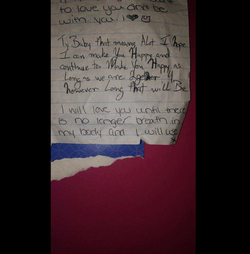 to love you and be
with you! I
Ty Baby that means Alot I hope
I can make You Happy and
continue to Make You Happy as
Long as we are together
however Long that will Be
I will love you until there
is no longer breath in
my body and I will